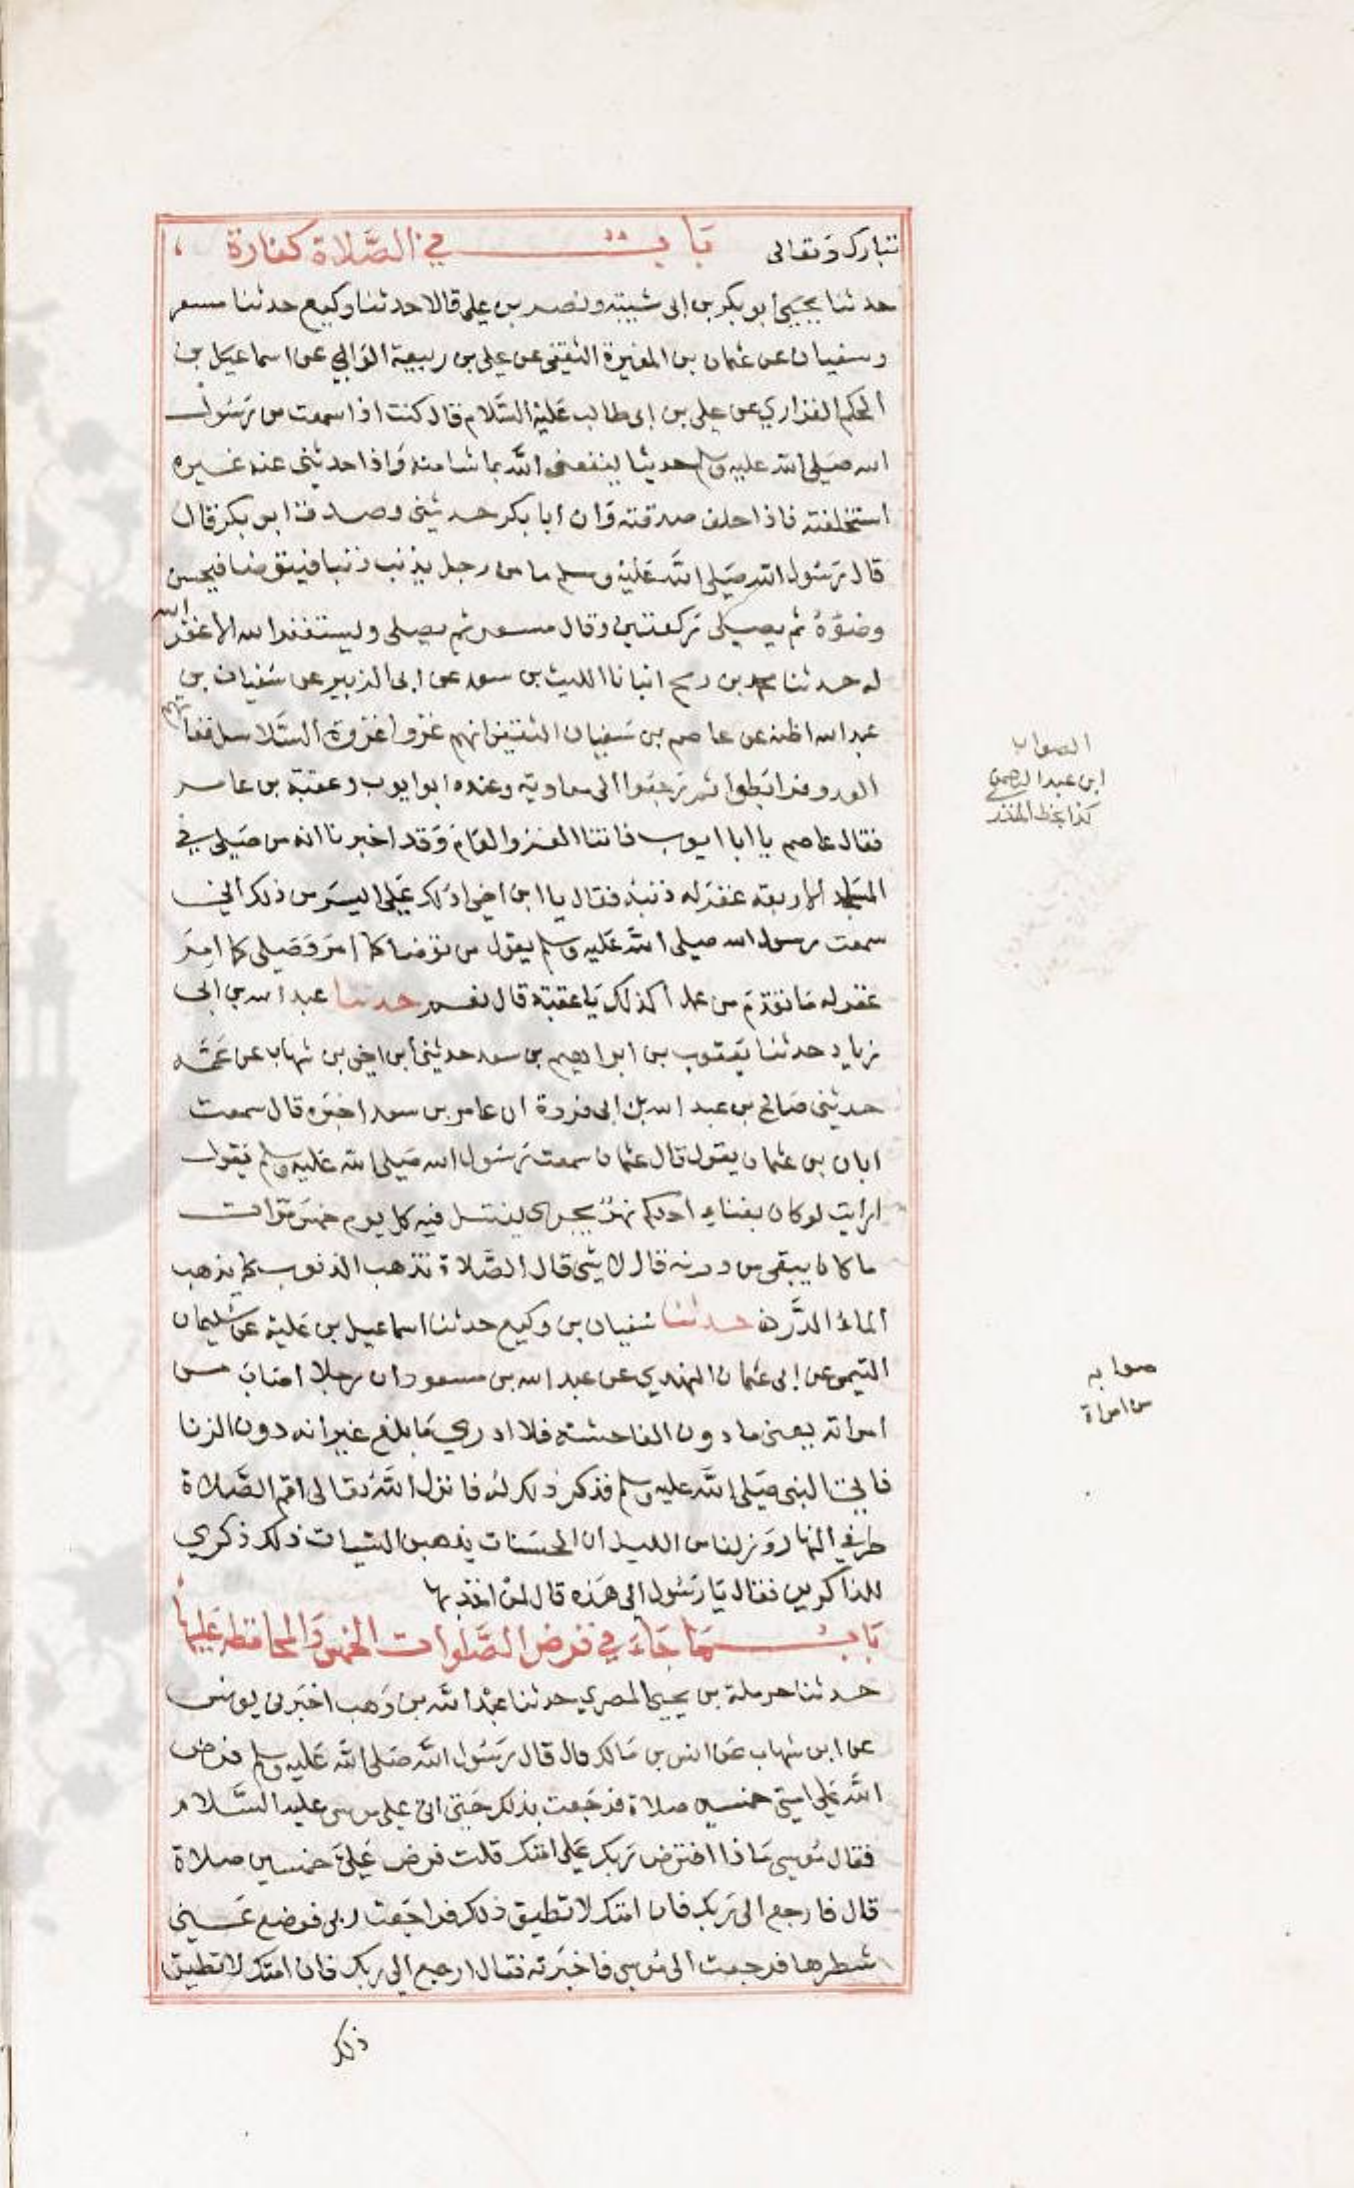 تبارك وتعالى باب في الصلاة كفارة
حدثنا يحيى ابو بكر بن ابي شيبة ونصر بن علي قالا حدثنا وكيع حدثنا مسعر
وسفيان عن عثمان بن المغيرة الثقفي عن علي بن ربيعة الوالبي عن اسماعيل بن
الحكم الفزاري عن علي بن ابي طالب عَليهِ السَّلام قال كنت اذا سمعت من رَسُول
الله صَلى الله عليه وسلم حديثا ينفعني الله بما شا منه وَاذا حدثني عنه غيره
استحلفته فاذا حلف صدقته وَان ابا بكر حدثني وصدق ابو بكر قال
قال رَسُول الله صَلى الله عَليه وسلم ما من رجل يذنب ذنبا فيتوضا فيحسن
وضوُهُ ثم يصلى ركعتين وقال مسعر ثم يصلى ويستغفر الله الا غفر الله
له حدثنا محمد بن رمح انبانا الليث بن سعد عن ابى الزبير عن سُفيان بن
عبد الله اظنه عن عاصم بن سَفيان الثقفي انهم غزوا غزوة السَّلاسل ففاتهم
العدو فرابَطوا ثم رجعَوا الى معاوية وعنده ابو ايوب وعقبة بن عامر
فقال عاصم يا ابا ايوب فاتنا الغزو العَام وَقد اخبرنا انه من صَلى في
المسَاجد الاربعة غفرَ له ذنبه فقال يا ابن اخي ادُلك عَلى ايسَر من ذلك اني
سمعت رسول الله صلى الله عَليه وسلم يقول من توضا كما امرَ وَصَلى كما امرَ
غفر له مَا تقدّم من عمل اكذلك يَا عقبة قال نعم حدثنا عبد الله بن ابي
زياد حدثنا يَعقوب بن ابراهيم بن سعد حدثني ابن اخي بن شهاب عن عَمّه
حدثني صَالح بن عبد الله بن ابى فروة ان عامر بن سعد اخبَره قال سمعت
ابان بن عثمان يقول قال عثمان سمعت رَسُول الله صَلى الله عَليه وسلم يَقول
ارايت لو كان بفناءِ احدكم نهرٌ يجرى يغتسل فيه كل يوم خمسَ مَرّات
ما كان يبقى من درنه قال لا شي قال الصَّلاة تذهب الذنوب كما يذهب
الماءُ الدَّرن حدثنا سُفيان بن وكيع حدثنا اسماعيل بن عَلية عن سُليمان
التيمى عن ابى عثمان النهدي عن عبد الله بن مسعود ان رجلا اصَابَ من
امراته يعنى ما دون الفاحشة فلا ادري مَا بلغ غير انه دون الزنا
فاتى النبى صَلى الله عليه وسلم فذكر ذلك له فانزل الله تعالى اقم الصَّلاة
طرفي النهار وَزلفا من الليل ان الحسَنات يذهبن السَّيات ذلك ذكري
للذاكرين فقال يَا رَسُول الى هَذه قال لمن اخذ بها
بَاب مَا جَاءَ في فرض الصَّلوات الخمس وَالمحافظة عَليها
حدثنا حرملة بن يحيى المصري حدثنا عبد الله بن وَهب اخبَرنى يونس
عن ابن شهاب عَن انس بن مَالك قال قال رَسُول الله صَلى الله عَليه وسلم فرض
الله عَلى امتي خمسين صلاة فرجَعت بذلك حَتى اتى على موسى عليه السَّلام
فقال مُوسى مَا ذا افترض رَبك عَلى امتك قلت فرض عَليَّ خمسين صلاة
قال فارجع الى رَبك فان امتك لا تطيق ذلك فراجَعت ربى فوضع عَني
شطرها فرجعت الى مُوسى فاخبَرته فقال ارجع الى ربك فان امتك لا تطيق
ذلك
الصواب
ابن عبد الرحمن
كذا بخط المنذر
صوابه
من امراة